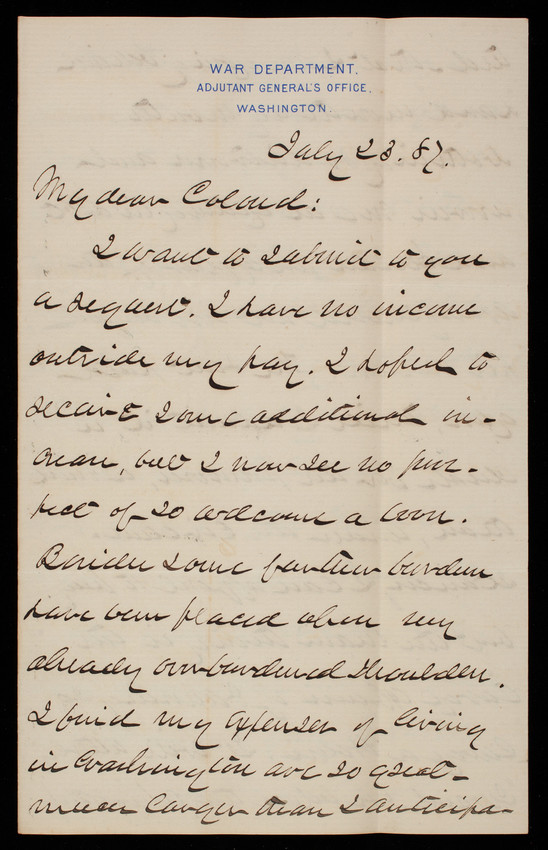 WAR DEPARTMENT,
ADJUTANT GENERAL'S OFFICE,
WASHINGTON.
July 23. 87.
My dear Colonel:
I want to submit to you
a request. I have no income
outside my pay. I hoped to
receive some additional in-
crease, but I now see no pros-
pect of so welcome a boon.
Besides some further burdens
have been placed upon my
already overburdened shoulders.
I find my expenses of living
in Washington are so great—
much larger than I anticipa-